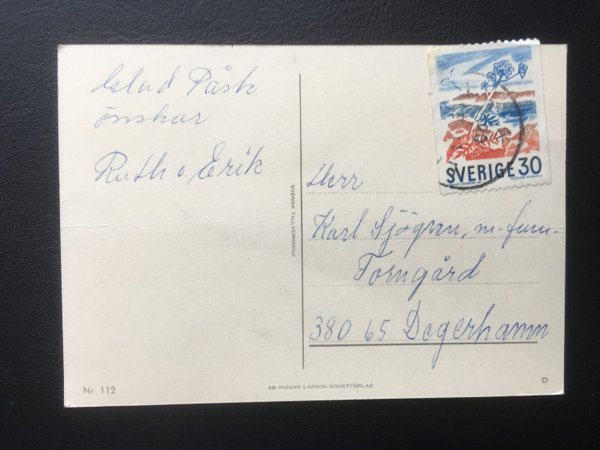 Glad Påsk
önskar
Ruth o Erik
SVERIGE 30
Herr
Karl Sjögren, m. fam.
Torngård
380 65 Degerhamn
SVENSK TILLVERKNING
Nr 112
AB INGVAR LARSON KONSTFÖRLAG
D